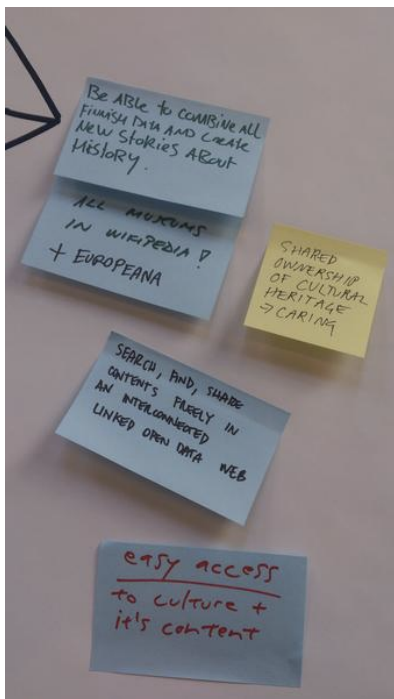 BE ABLE TO COMBINE ALL
FINNISH DATA AND CREATE
NEW STORIES ABOUT
HISTORY.
ALL MUSEUMS
IN WIKIPEDIA!
+ EUROPEANA
SHARED
OWNERSHIP
OF CULTURAL
HERITAGE
→ CARING
SEARCH, FIND, SHARE
CONTENTS FREELY IN
AN INTERCONNECTED
LINKED OPEN DATA WEB
easy access
to culture +
it's content